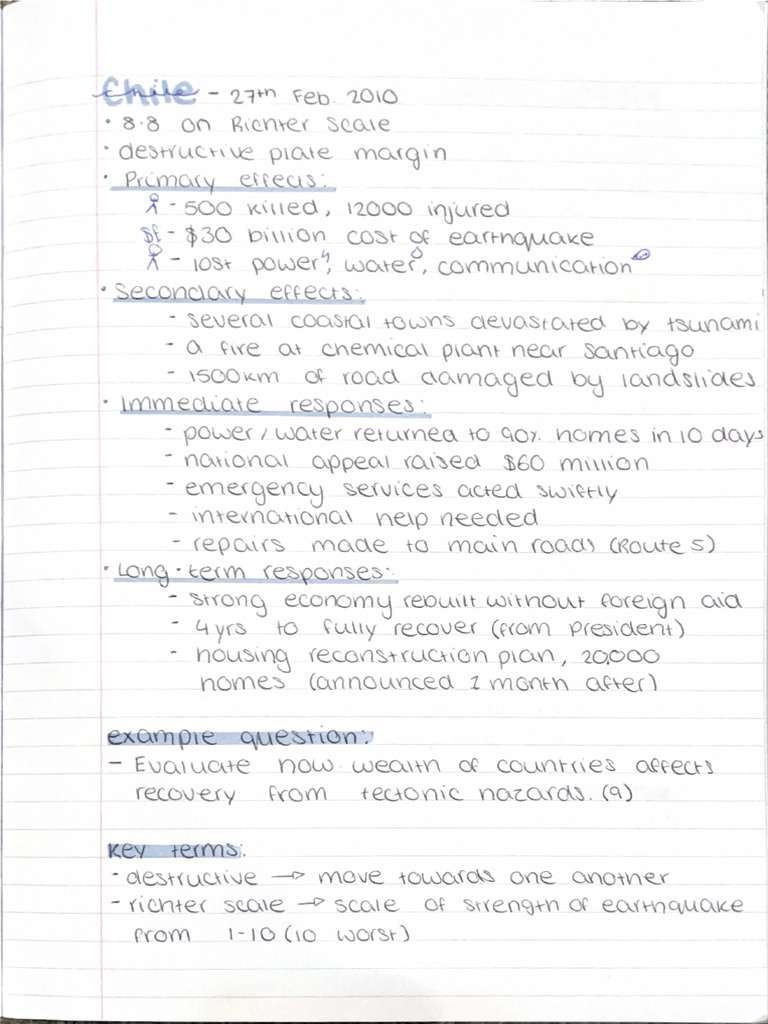 Chile - 27th Feb. 2010
• 8.8 on Richter Scale
• destructive plate margin
• Primary effects:
- 500 killed, 12000 injured
$£ - $30 billion cost of earthquake
- lost power, water, communication
• Secondary effects:
- several coastal towns devastated by tsunami
- a fire at chemical plant near Santiago
- 1500km of road damaged by landslides
• Immediate responses:
- power/water returned to 90% homes in 10 days
- national appeal raised $60 million
- emergency services acted swiftly
- international help needed
- repairs made to main roads (Route 5)
• Long-term responses:
- strong economy rebuilt without foreign aid
- 4yrs to fully recover (from president)
- housing reconstruction plan, 20,000
homes (announced 1 month after)
example question:
- Evaluate how wealth of countries affects
recovery from tectonic hazards. (9)
key terms:
- destructive → move towards one another
- richter scale → scale of strength of earthquake
from 1-10 (10 worst)